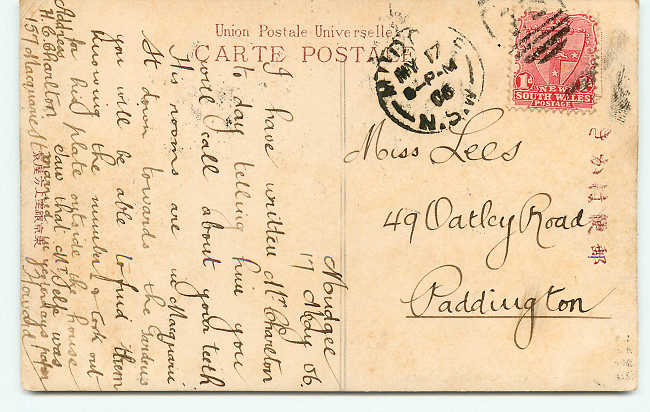 Union Postale Universelle
CARTE POSTALE
MUDGEE
MY 17
8-P-M
06
N.S.W
1D
NEW
SOUTH WALES
POSTAGE
きかは便郵
Miss Lees
49 Oatley Road
Paddington
Mudgee
17 May 06.
I have written Mr Charlton
to day telling him you
would call about your teeth
His rooms are in Macquarie
St down towards the Gardens
you will be able to find them
knowing the number & look out
for his plate outside the house
Saw that Mr Self was
married in yesterdays paper
Address
H. C. Charlton
157 Macquarie St